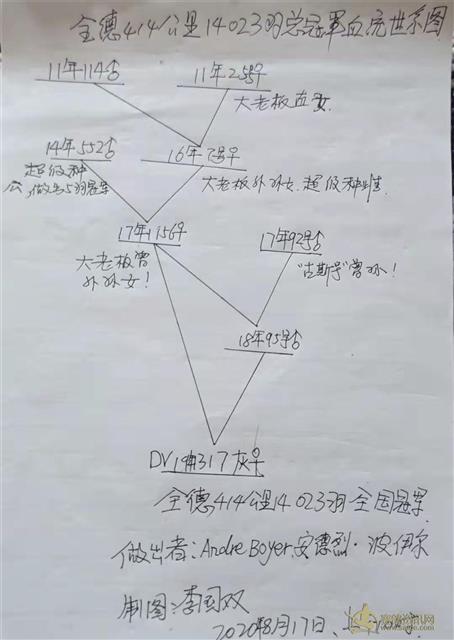 全德414公里14023羽总冠军血统世系图
11年114♂ 11年258♀
大老板直女
14年552♂ 16年7号♀
超级种公,做出5羽冠军
大老板外孙女.超级种雌
17年1156♀ 17年92号♂
大老板曾外孙女! "古斯号"曾孙!
18年95号♂
DV19 317灰♀
全德414公里14023羽全国冠军
做出者:Andre Boyer.安德烈·波伊尔
制图:李国双
2020年8月17日、